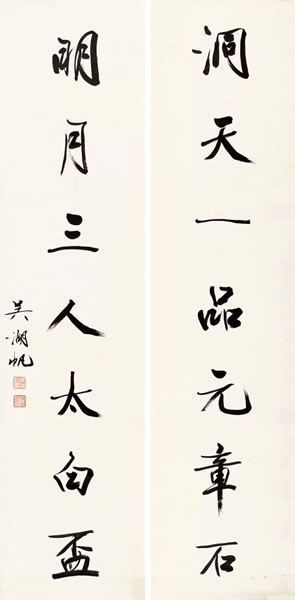 洞天一品元章石
明月三人太白盃
吴湖帆